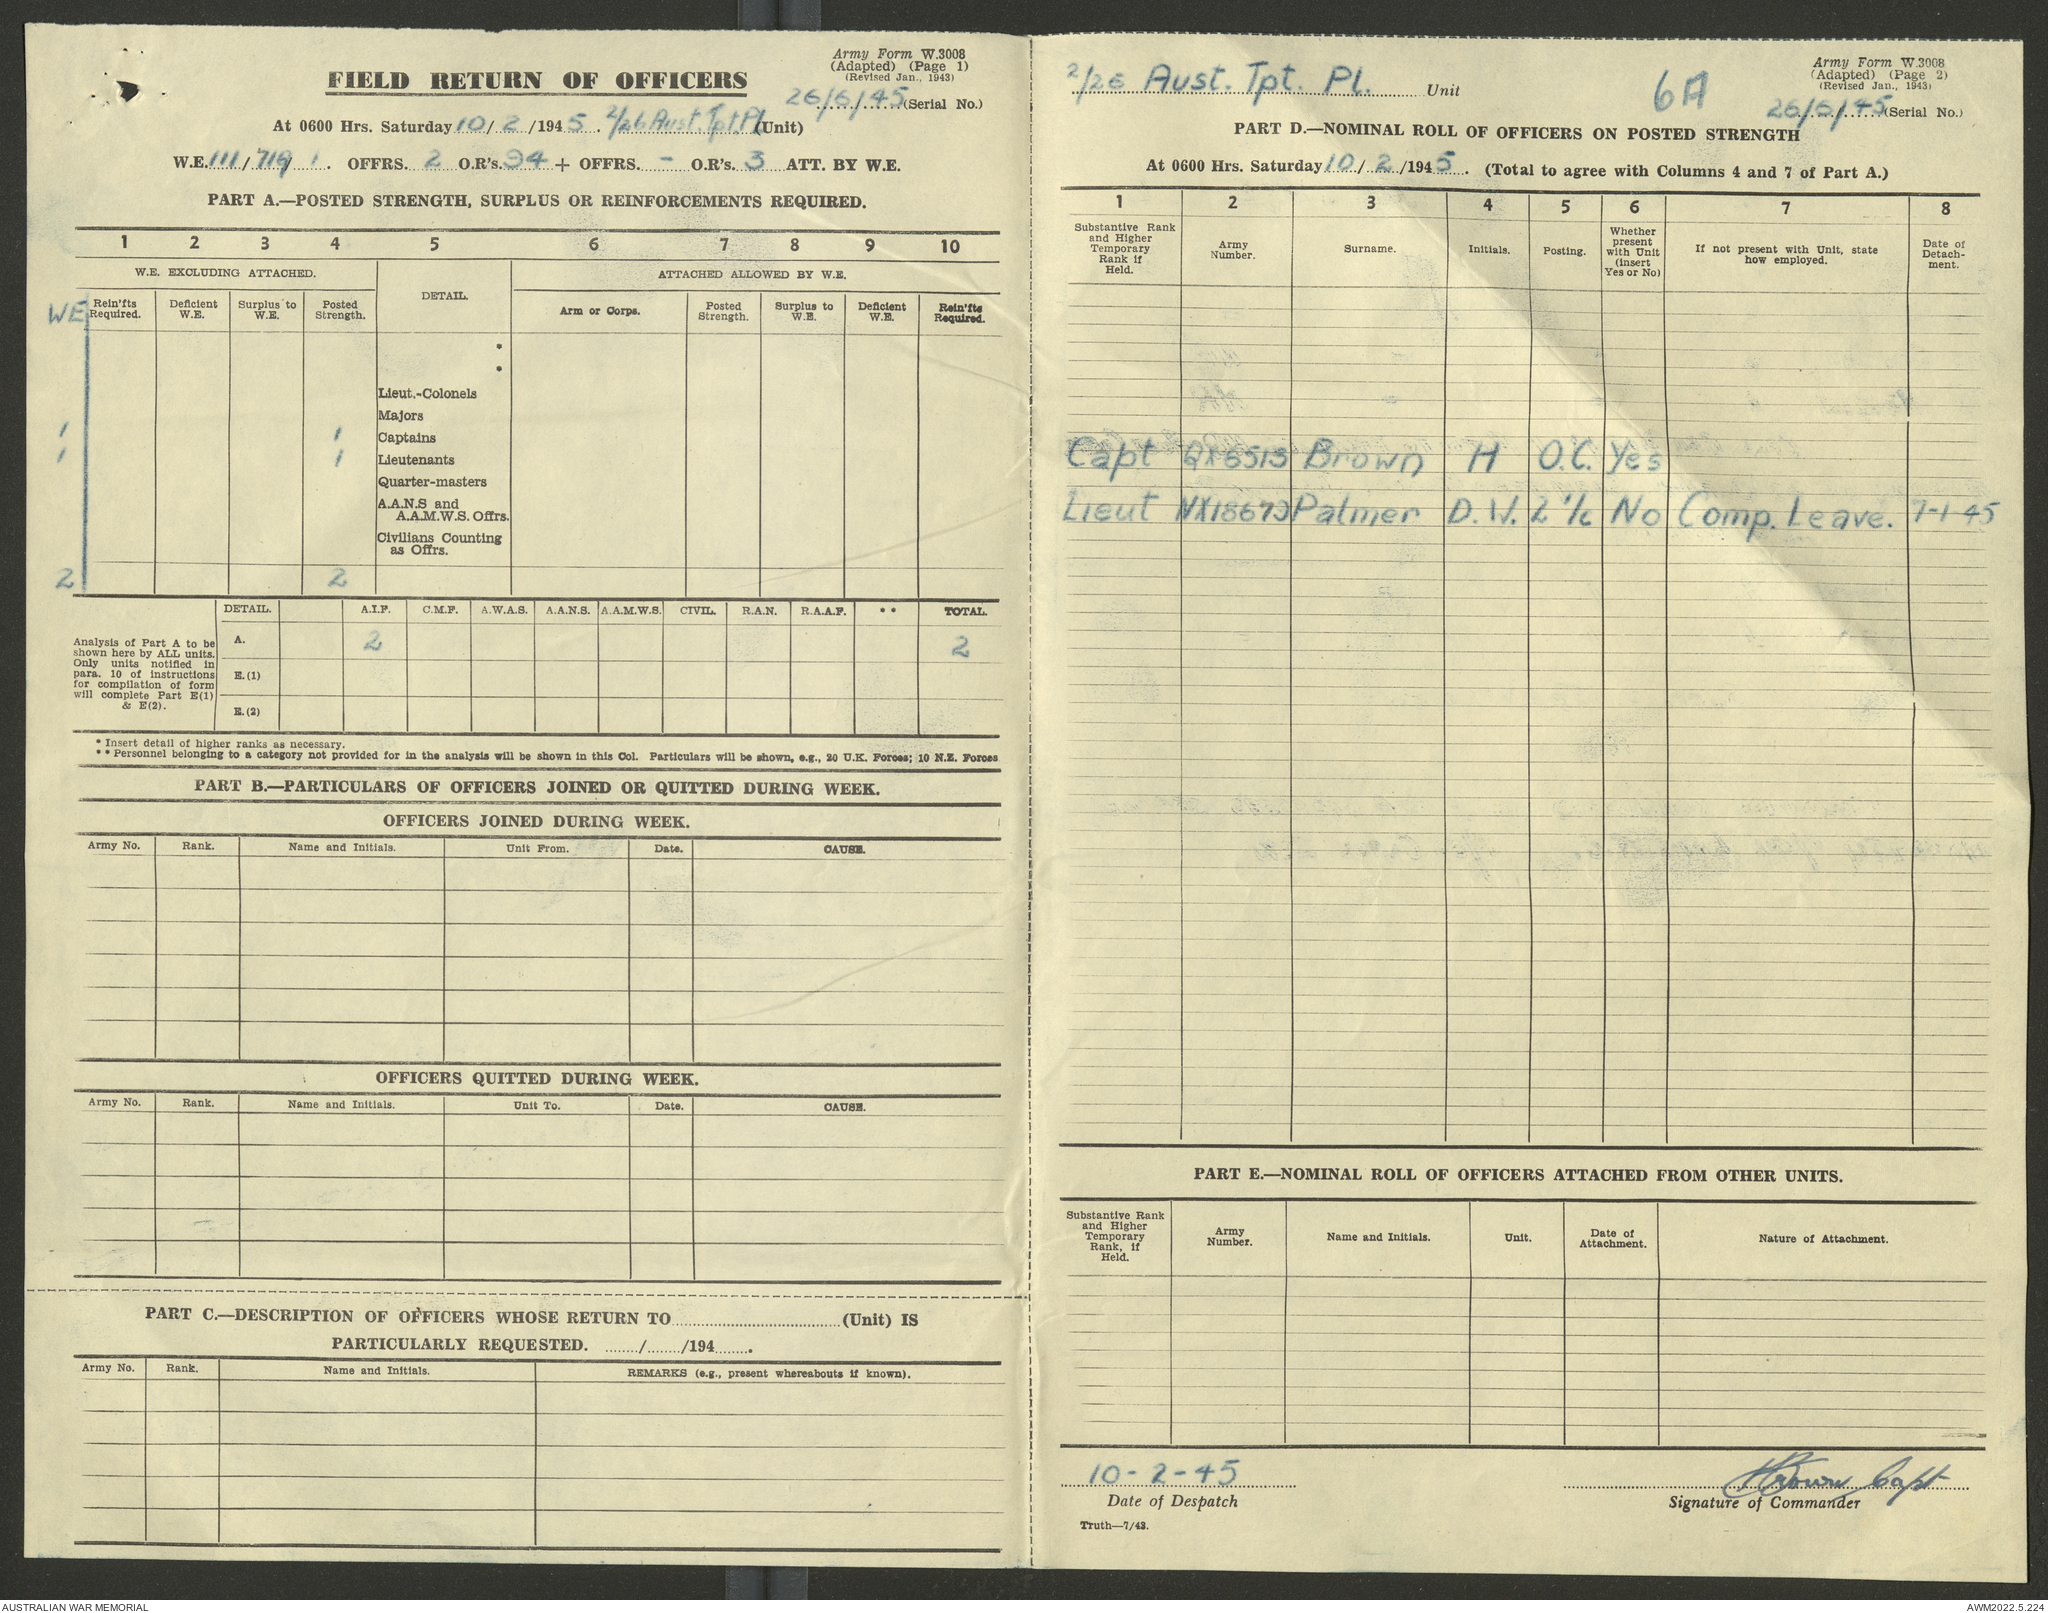 Army Form W.3008
(Adapted) (Page 1)
(Revised Jan., 1943)
FIELD RETURN OF OFFICERS
26/6/45 (Serial No.)
At 0600 Hrs. Saturday 10/2/1945. 2/26 Aust. Tpt Pl (Unit)
W.E. 111/719/1. OFFRS. 2 O.R's. 94 + OFFRS. - O.R's. 3 ATT. BY W.E.
PART A.—POSTED STRENGTH, SURPLUS OR REINFORCEMENTS REQUIRED.
1 2 3 4 5 6 7 8 9 10
W.E. EXCLUDING ATTACHED. DETAIL. ATTACHED ALLOWED BY W.E.
WE Rein'fts Required. Deficient W.E. Surplus to W.E. Posted Strength. Arm or Corps. Posted Strength. Surplus to W.E. Deficient W.E. Rein'fts Required.
*
*
Lieut.-Colonels
Majors
1 1 Captains
1 1 Lieutenants
Quarter-masters
A.A.N.S and
A.A.M.W.S. Offrs.
Civilians Counting
as Offrs.
2 2
DETAIL. A.I.F. C.M.F. A.W.A.S. A.A.N.S. A.A.M.W.S. CIVIL. R.A.N. R.A.A.F. ** TOTAL.
Analysis of Part A to be
shown here by ALL units.
Only units notified in
para. 10 of instructions
for compilation of form
will complete Part E(1)
& E(2).
A. 2 2
E.(1)
E.(2)
* Insert detail of higher ranks as necessary.
** Personnel belonging to a category not provided for in the analysis will be shown in this Col. Particulars will be shown, e.g., 20 U.K. Forces; 10 N.Z. Forces
PART B.—PARTICULARS OF OFFICERS JOINED OR QUITTED DURING WEEK.
OFFICERS JOINED DURING WEEK.
Army No. Rank. Name and Initials. Unit From. Date. CAUSE.
OFFICERS QUITTED DURING WEEK.
Army No. Rank. Name and Initials. Unit To. Date. CAUSE.
PART C.—DESCRIPTION OF OFFICERS WHOSE RETURN TO ........ (Unit) IS
PARTICULARLY REQUESTED. ......../......../194........
Army No. Rank. Name and Initials. REMARKS (e.g., present whereabouts if known).
Army Form W.3008
(Adapted) (Page 2)
(Revised Jan., 1943)
2/26 Aust. Tpt. Pl. Unit 6A
26/6/45 (Serial No.)
PART D.—NOMINAL ROLL OF OFFICERS ON POSTED STRENGTH
At 0600 Hrs. Saturday 10/2/1945. (Total to agree with Columns 4 and 7 of Part A.)
1 2 3 4 5 6 7 8
Substantive Rank and Higher Temporary Rank if Held. Army Number. Surname. Initials. Posting. Whether present with Unit (insert Yes or No) If not present with Unit, state how employed. Date of Detach-ment.
Capt QX6513 Brown H O.C. Yes
Lieut NX18673 Palmer D.W. 2 i/c No Comp. Leave. 7-1-45
PART E.—NOMINAL ROLL OF OFFICERS ATTACHED FROM OTHER UNITS.
Substantive Rank and Higher Temporary Rank, if Held. Army Number. Name and Initials. Unit. Date of Attachment. Nature of Attachment.
10-2-45 HBrown Capt
Date of Despatch Signature of Commander
Truth—7/43.
AUSTRALIAN WAR MEMORIAL AWM2022.5.224